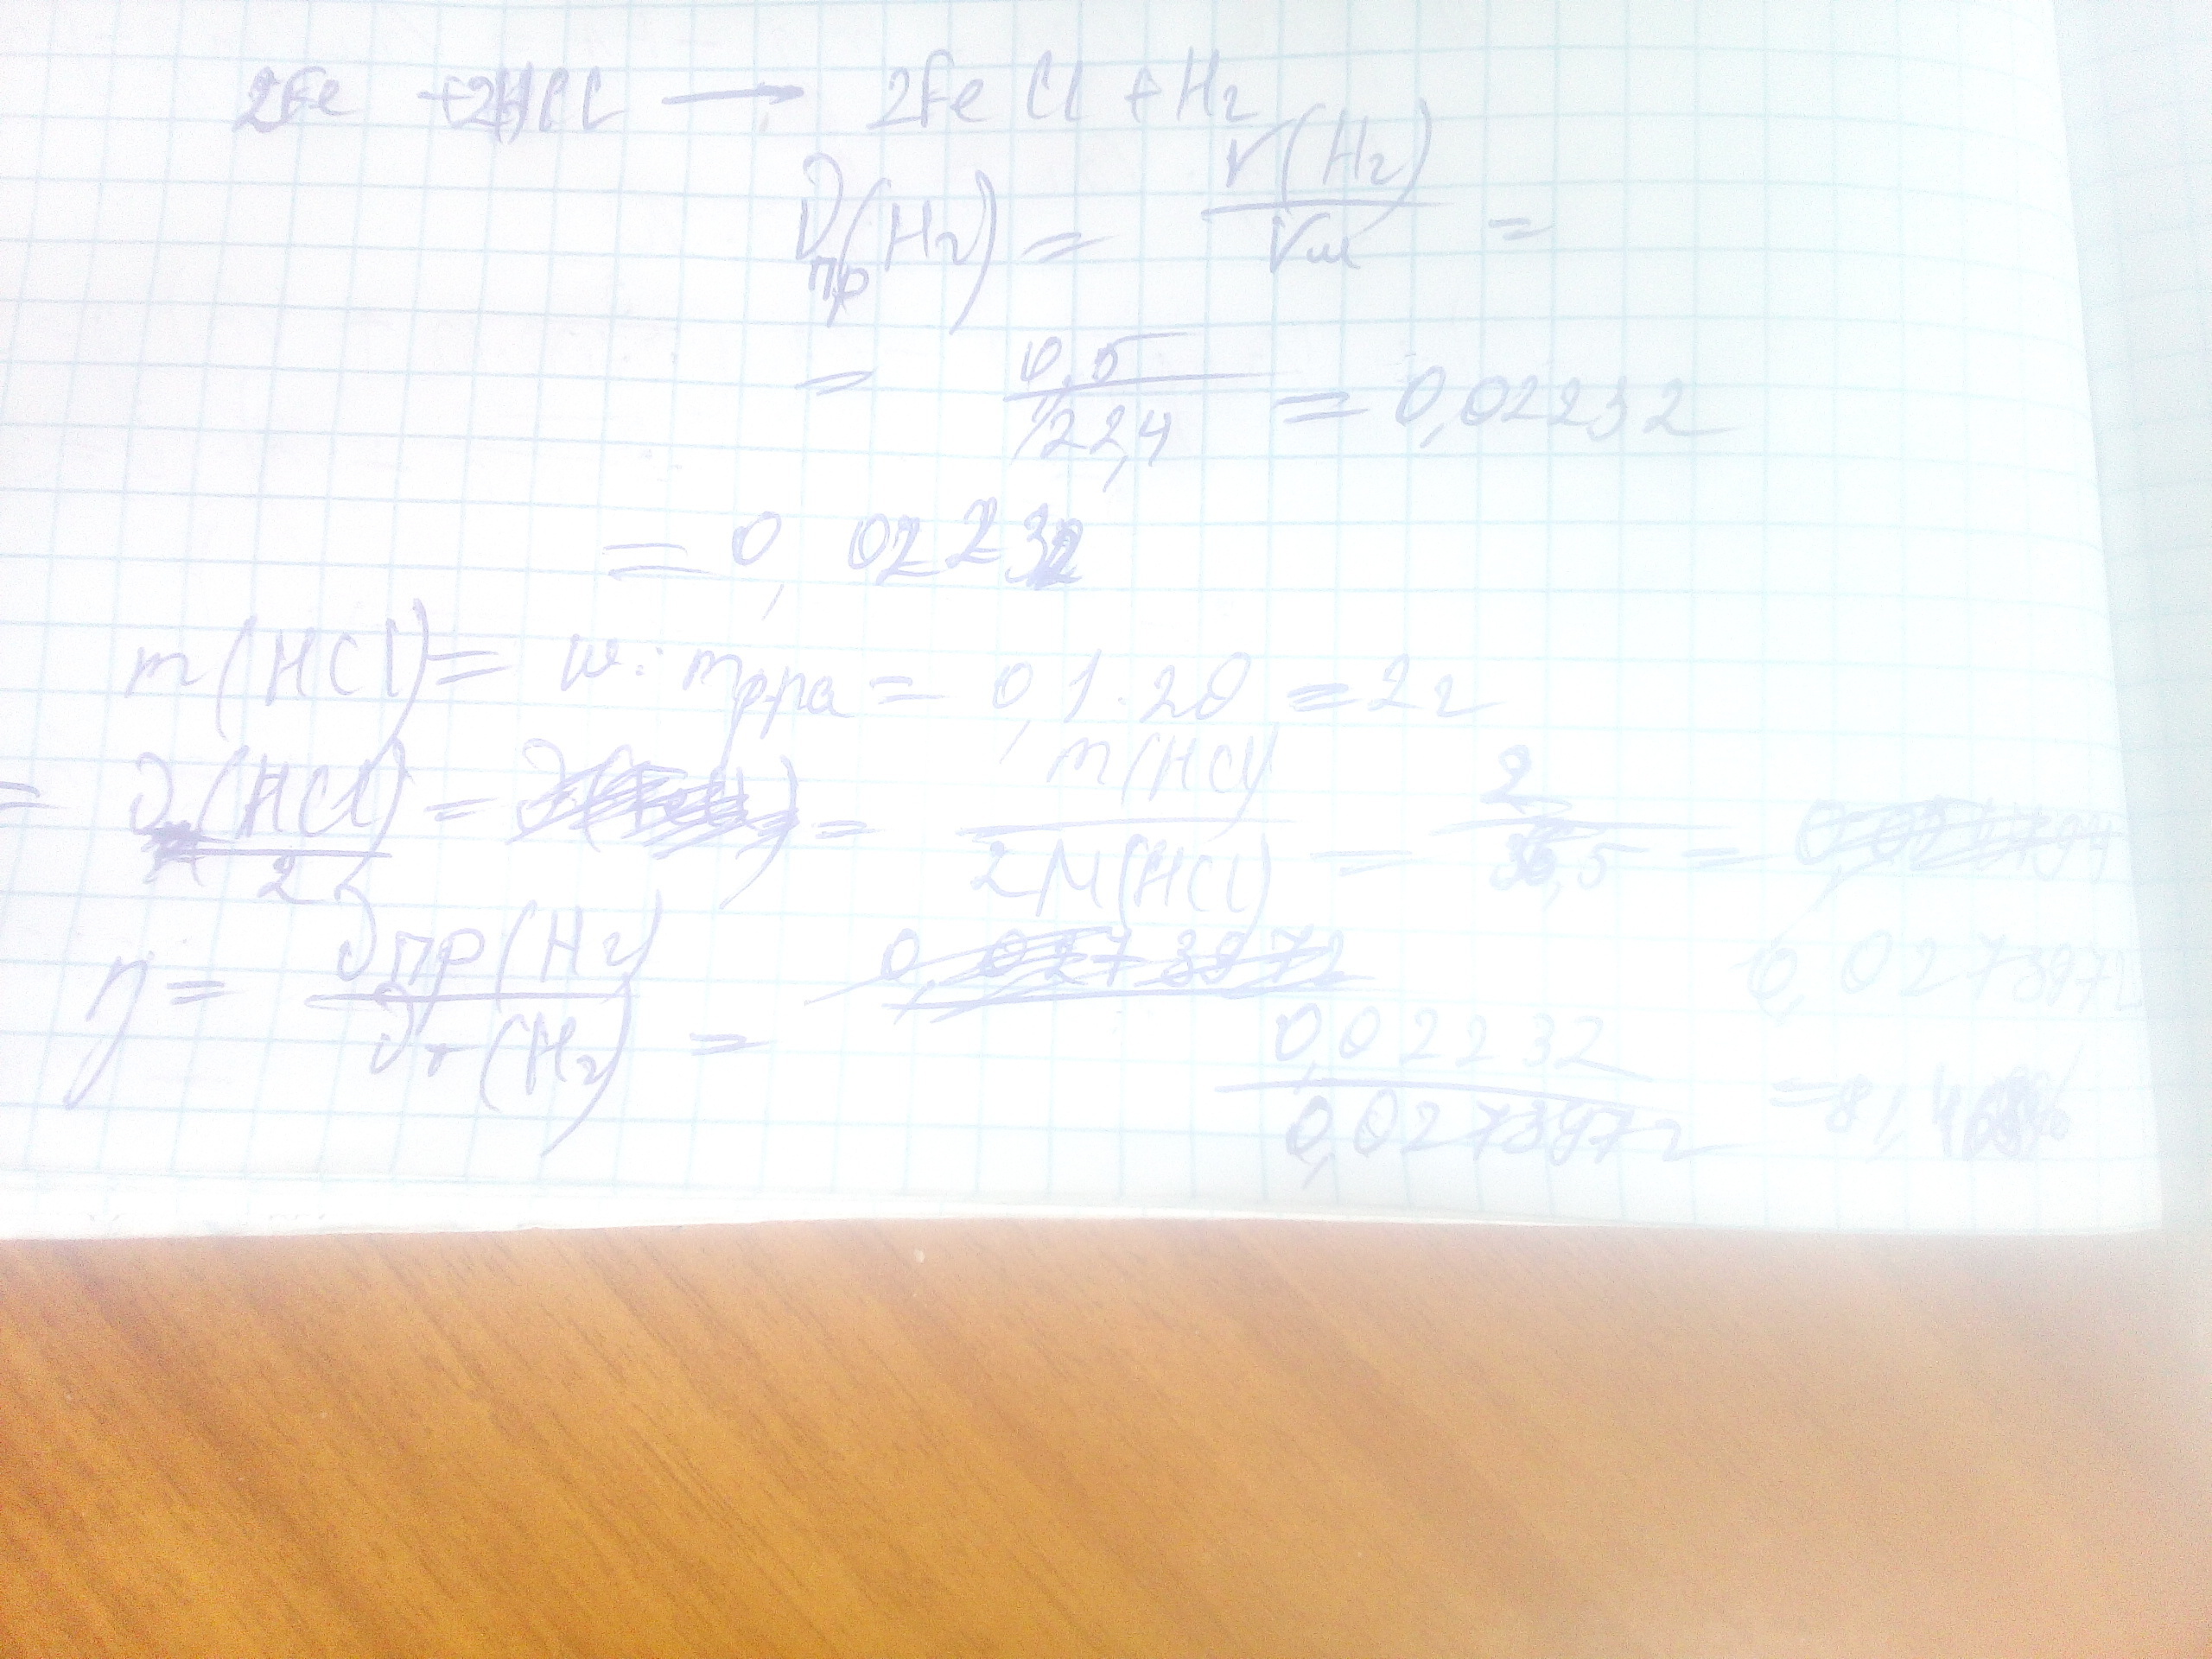 2Fe + 2HCl → 2FeCl + H2
νпр(H2) = V(H2)/Vм =
= 0,5/22,4 = 0,02232
= 0,02232
m(HCl) = w · mр-ра = 0,1 · 20 = 2г
= ν(HCl)/2 = = m(HCl)/2M(HCl) = 2/36,5 =
0,0273972
η = νпр(H2)/νт(H2) = 0,02232/0,0273972 = 81,468%